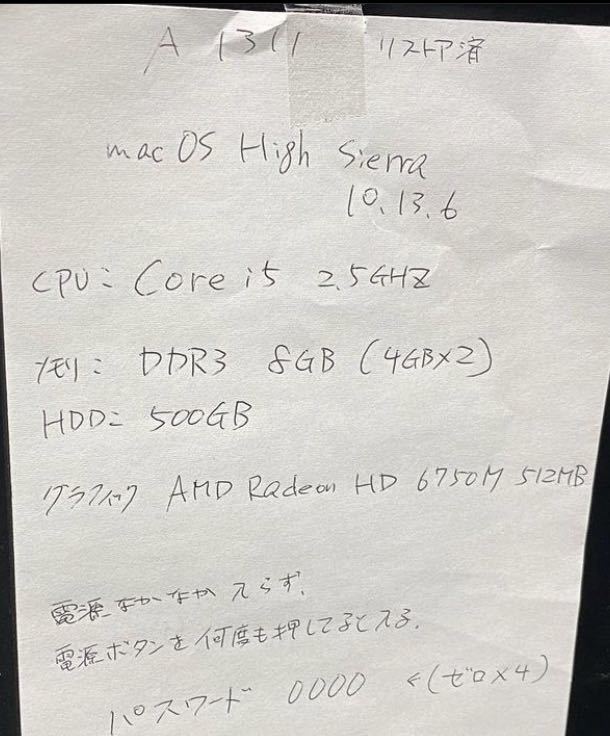 A 1311 リストア済
mac OS High Sierra
10.13.6
CPU: Core i5 2.5GHZ
メモリ: DDR3 8GB (4GB×2)
HDD: 500GB
グラフィック AMD Radeon HD 6750M 512MB
電源なかなか入らず、
電源ボタンを何度も押してると入る.
パスワード 0000 ←(ゼロ×4)